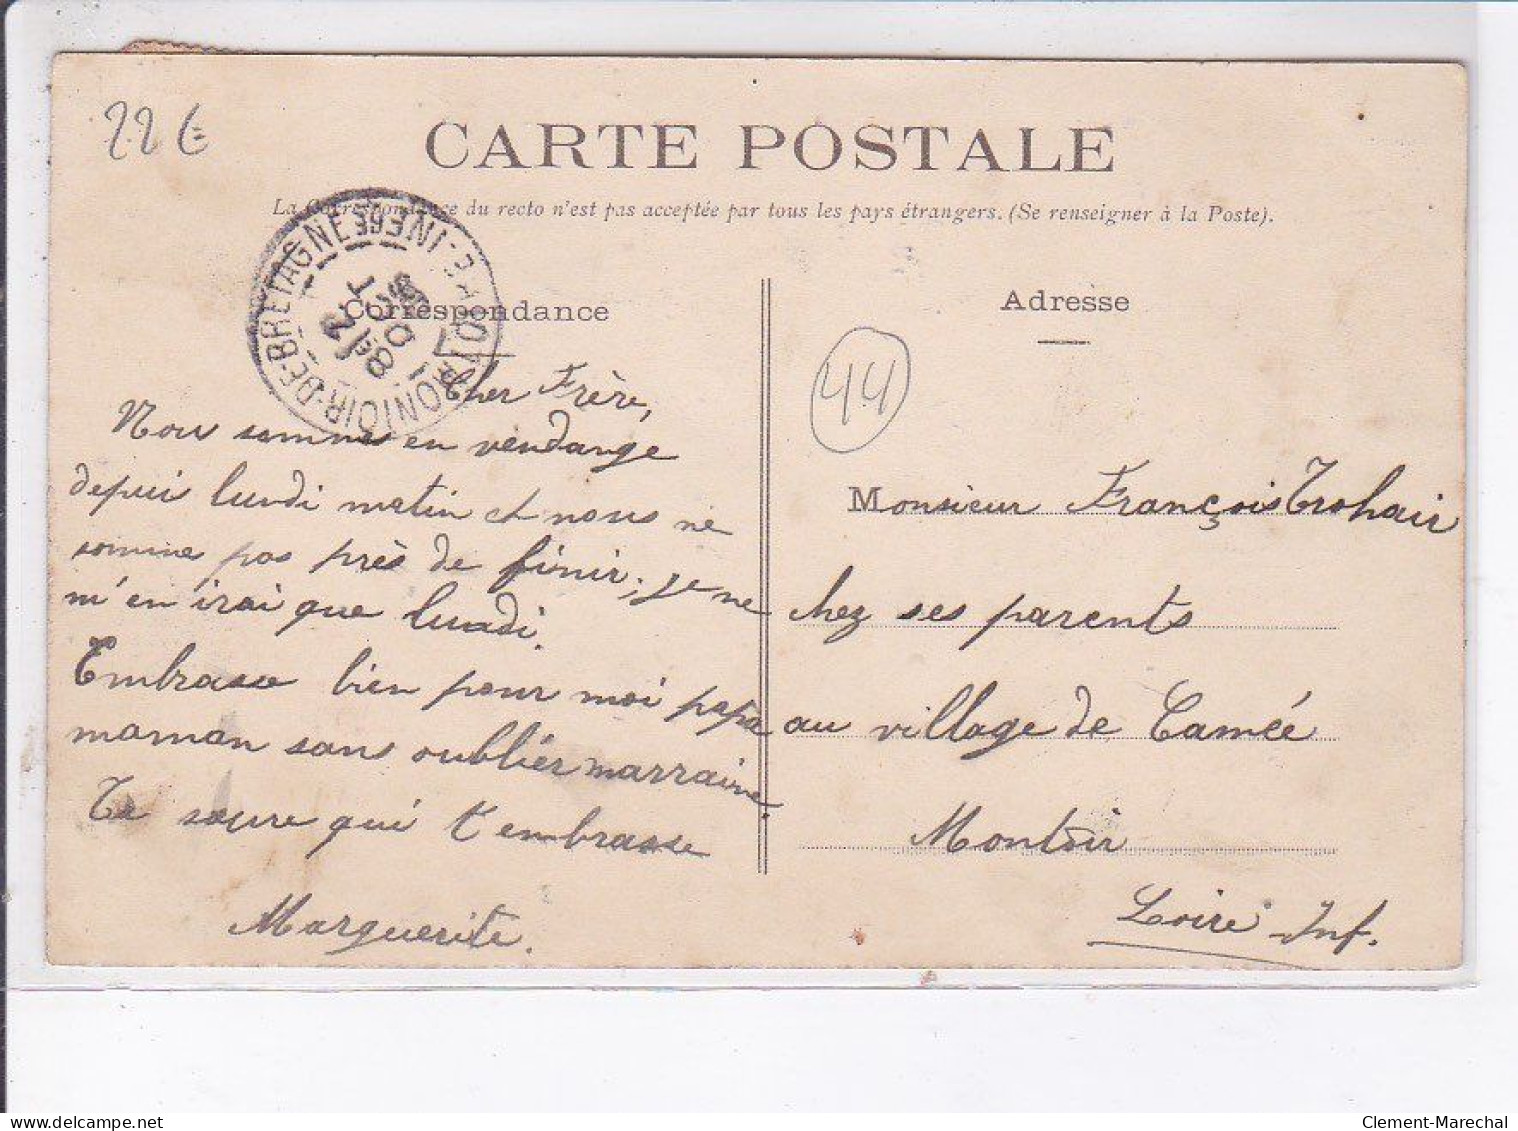 22€
CARTE POSTALE
La Correspondance du recto n'est pas acceptée par tous les pays étrangers. (Se renseigner à la Poste).
MONTOIR-DE-BRETAGNE
LOIRE-INF
Correspondance
Cher Frère,
Nou sommes en vendange
depui lundi matin et nous ne
somme pas près de finir, je ne
m'en irai que lundi.
Embrasse bien pour moi papa
maman sans oublier marraine.
Ta sœure qui t'embrasse
Marguerite.
Adresse
44
Monsieur François Trohair
chez ses parents
au village de Camée
Montoir
Loire Inf.
delcampe.net
Clement-Marechal